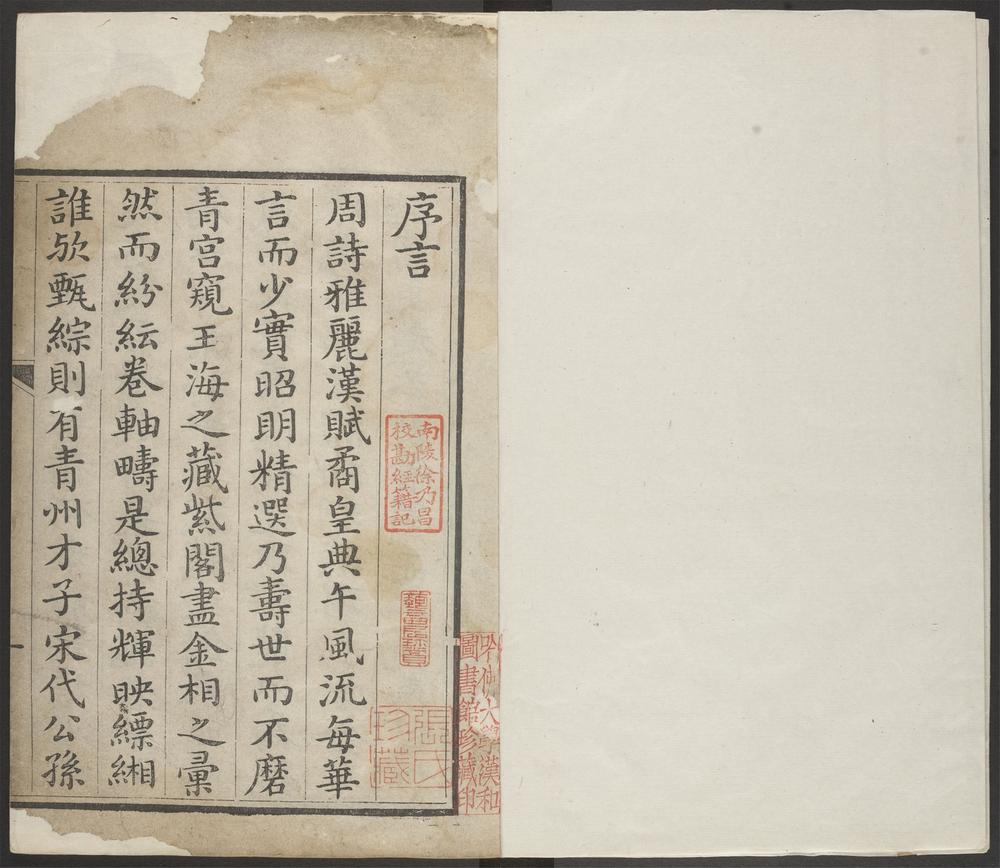 序言
周詩雅麗漢賦矞皇典午風流每華
言而少實昭明精選乃壽世而不磨
青宮窺王海之藏紫閣盡金相之彙
然而紛紜卷軸疇是總持輝映縹緗
誰欤甄綜則有青州才子宋代公孫
南陵徐乃昌
校勘經籍記
張氏
珍藏
哈佛大學漢和
圖書館珍藏印